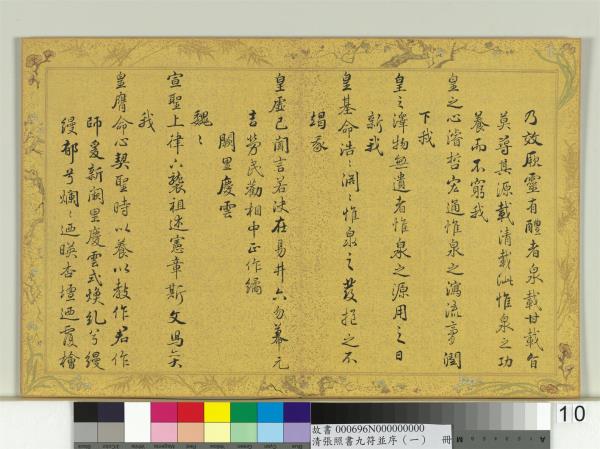 乃效厥靈有醴者泉載甘載旨
莫尋其源載清載泚惟泉之功
養而不窮我
皇之心濬哲宏通惟泉之瀉流膏潤
下我
皇之澤物無遺者惟泉之源用之日
新我
皇基命浩〻淵〻惟泉之發挹之不
竭
皇虛己聞言若決在易井六勿幕元
吉勞民勸相中正作繘
闕里慶雲
巍〻
宣聖上律下襲祖述憲章斯文
我
皇膺命心契聖時以養以教作君作
師爰新闕里慶雲式煥糺兮縵
縵郁兮爛〻迺暎杏壇迺霞檜
10
故書 000696N000000000
清張照書九符並序(一) 冊